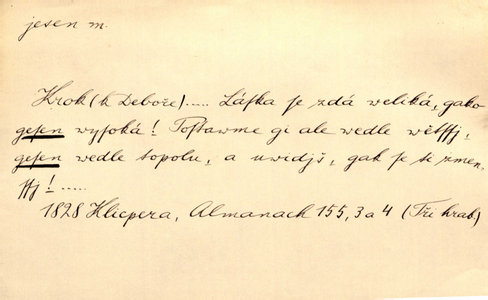 jesen m.
Krok (k Deboře)..... Láſka ſe zdá weliká, gako
geſen wyſoká! Poſtawme gi ale wedle wětſſj,
geſen wedle topolu, a uwidjš, gak ſe ti zmen-
ſſj!.....
1828 Klicpera, Almanach 155, 3 a 4 (Tři hrab)